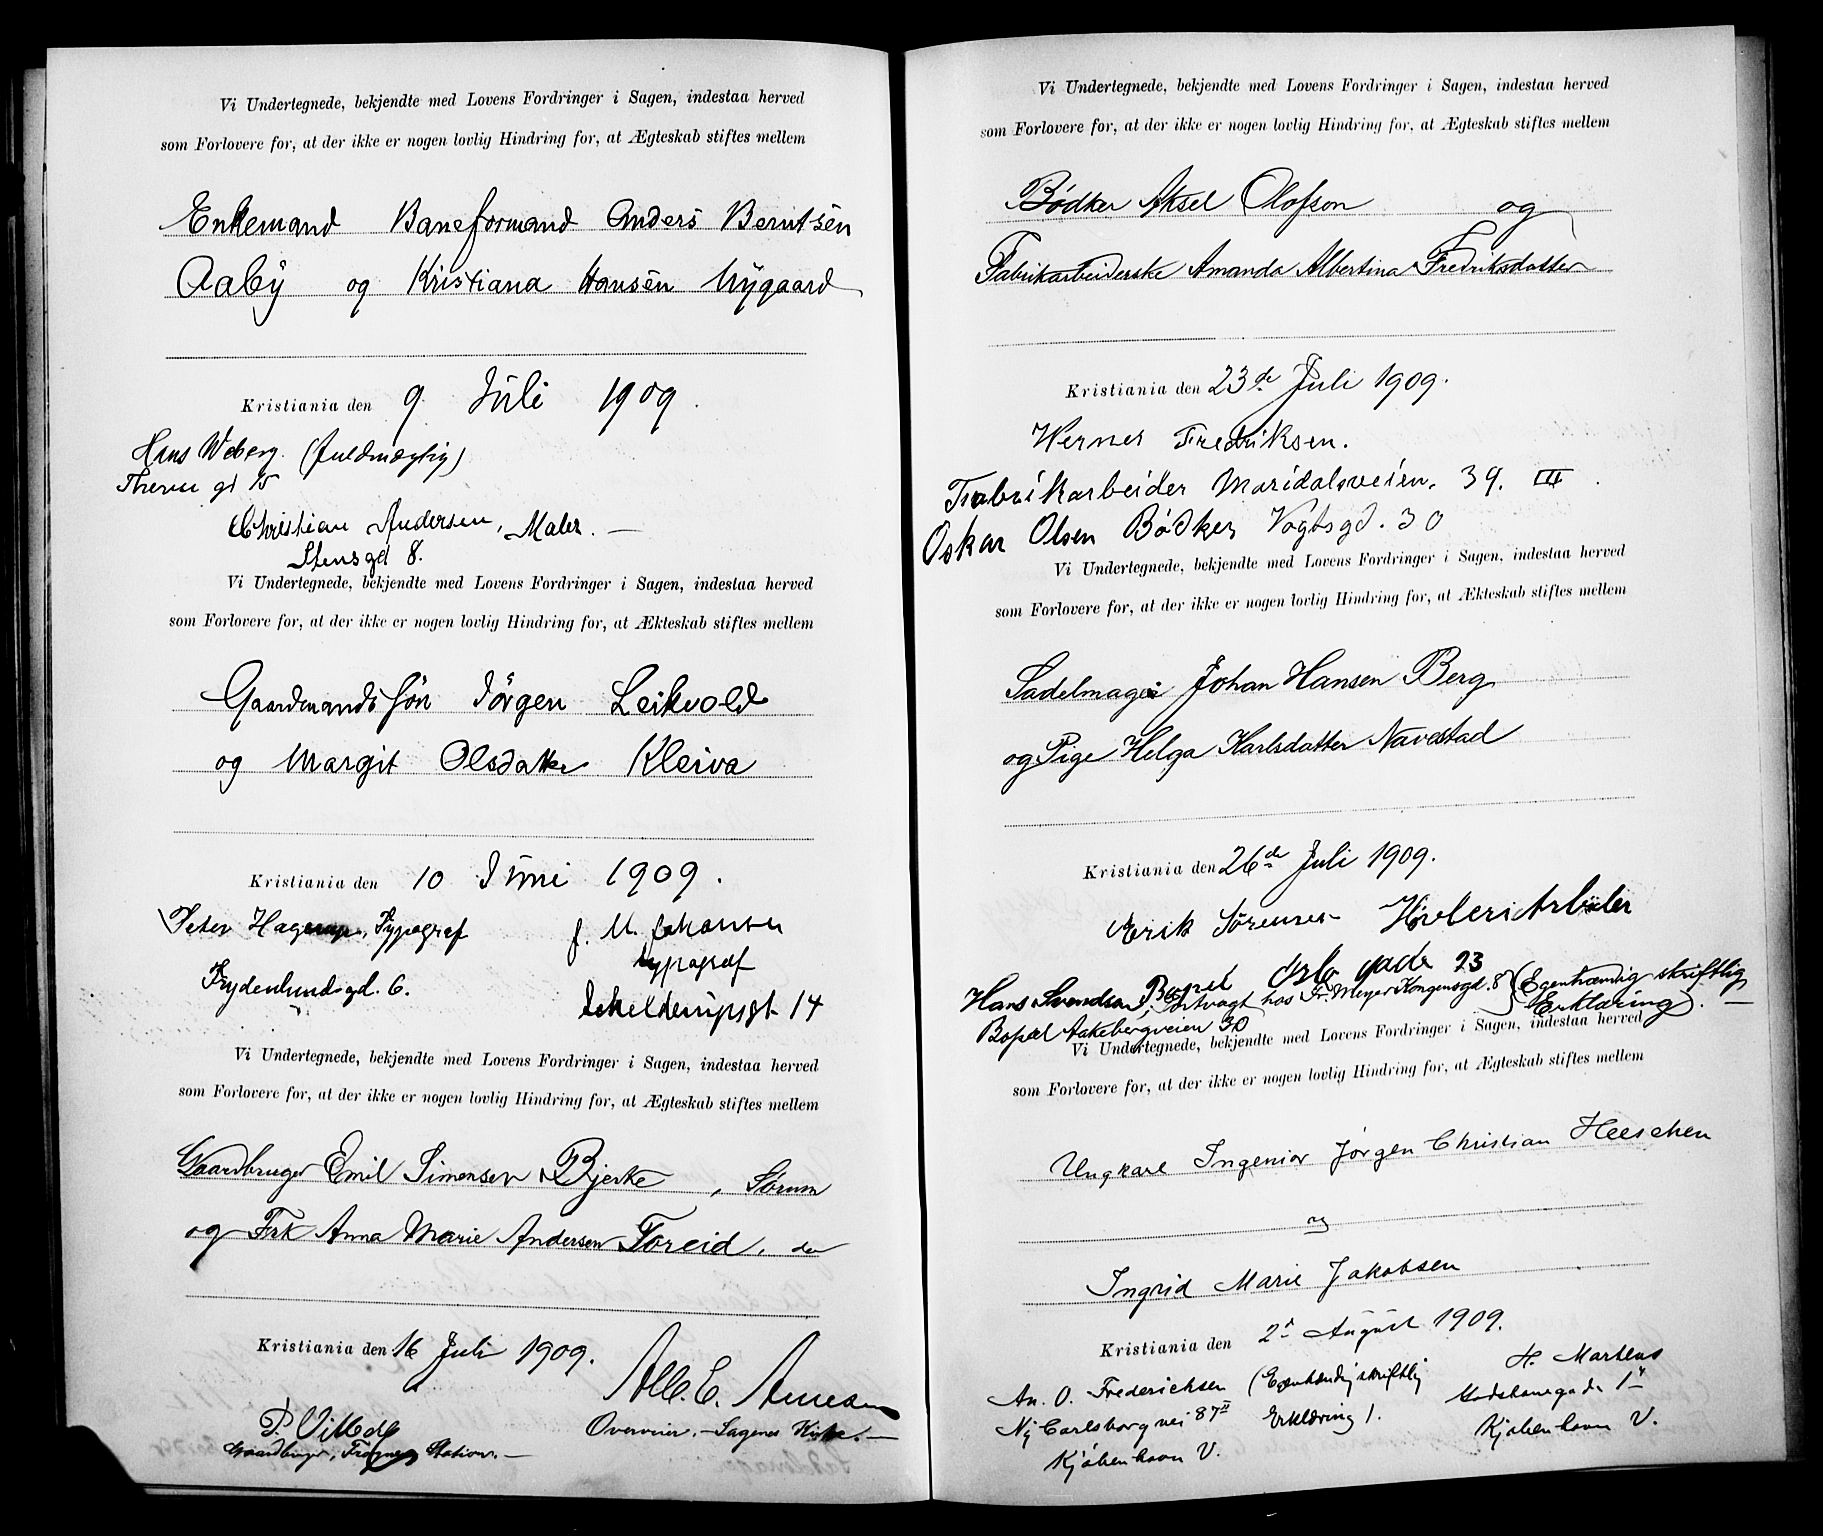 Vi Undertegnede, bekjendte med Lovens Fordringer i Sagen, indestaa herved
som Forlovere for, at der ikke er nogen lovlig Hindring for, at Ægteskab stiftes mellem
Enkemand Baneformand Anders Berntsen
Aaby og Kristiana Hansen Nygaard
Kristiania den 9. Juli 1909.
Hans Weberg. (fuldmægtig)
gd 15
Christian Andersen, Maler. —
Stensgd 8.
Vi Undertegnede, bekjendte med Lovens Fordringer i Sagen, indestaa herved
som Forlovere for, at der ikke er nogen lovlig Hindring for, at Ækteskab stiftes mellem
Gaardmandssøn Jörgen Leikvold
og Margit Olsdatter Kleiva
Kristiania den 10 Juni 1909.
Peter Hagerup, Typograf
Frydenlundsgd. 6.
J. M. Johansen
typograf
Schelderupsgt 14
Vi Undertegnede, bekjendte med Lovens Fordringer i Sagen, indestaa herved
som Forlovere for, at der ikke er nogen lovlig Hindring for, at Ægteskab stiftes mellem
Gaardbruger Emil Simensen Bjerke, Sørum
og Frk Anna Marie Andersen Foreid, do
Kristiania den 16 Juli 1909.
Gaardbruger, Station. —
Sagenes Kirke. —
Vi Undertegnede, bekjendte med Lovens Fordringer i Sagen, indestaa herved
som Forlovere for, at der ikke er nogen lovlig Hindring for, at Ægteskab stiftes mellem
Bødker Aksel Olofson og
Fabrikarbeiderske Amanda Albertina Fredriksdatter
Kristiania den 23de Juli 1909.
Werner Fredriksen.
Fabrikarbeider Maridalsveien. 39. III.
Oskar Olsen Bödker Vogtsgd. 30
Vi Undertegnede, bekjendte med Lovens Fordringer i Sagen, indestaa herved
som Forlovere for, at der ikke er nogen lovlig Hindring for, at Ækteskab stiftes mellem
Sadelmager Johan Hansen Berg
og Pige Helga Karlsdatter Navestad
Kristiania den 26de Juli 1909.
Erik Sørensen Høvleriarbeider
Bopæl Oslo gade 23
Hans Svendsen, Portvagt hos Fr. Meyer Kongensgd. 8 (Egenhændig skriftlig
Erklæring). —
Bopæl Aakebergveien 30
Vi Undertegnede, bekjendte med Lovens Fordringer i Sagen, indestaa herved
som Forlovere for, at der ikke er nogen lovlig Hindring for, at Ægteskab stiftes mellem
Ungkarl Ingeniør Jørgen Christian Heeschen
og
Ingrid Marie Jakobsen
Kristiania den 2d August 1909.
An. O. Frederichsen (Egenhændig skriftlig
Ny Carlsborgvei 87 II Erklæring).
Kjøbenhavn V.
H. Martens
1
Kjøbenhavn V.